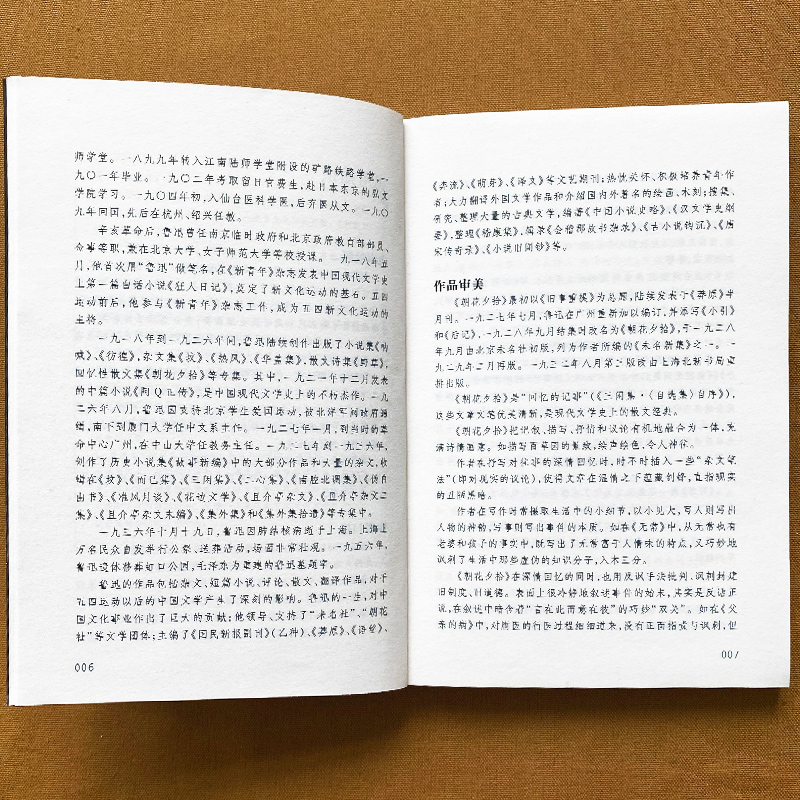 师学堂。一八九九年转入江南陆师学堂附设的矿路铁路学堂,一
九〇一年毕业。一九〇二年考取留日官费生,赴日本东京的弘文
学院学习。一九〇四年初,入仙台医科学医,后弃医从文。一九〇
九年回国,先后在杭州、绍兴任教。
辛亥革命后,鲁迅曾任南京临时政府和北京政府教育部部员、
佥事等职,兼在北京大学、女子师范大学等校授课。一九一八年五
月,他首次用“鲁迅”做笔名,在《新青年》杂志发表中国现代文学史
上第一篇白话小说《狂人日记》,奠定了新文化运动的基石。五四
运动前后,他参与《新青年》杂志工作,成为五四新文化运动的
主将。
一九一八年到一九二六年间,鲁迅陆续创作出版了小说集《呐
喊》、《彷徨》,杂文集《坟》、《热风》、《华盖集》,散文诗集《野草》,
回忆性散文集《朝花夕拾》等专集。其中,一九二一年十二月发表
的中篇小说《阿Q正传》,是中国现代文学史上的不朽杰作。一九
二六年八月,鲁迅因支持北京学生爱国运动,被北洋军阀政府通
缉,南下到厦门大学任中文系主任。一九二七年一月,到当时的革
命中心广州,在中山大学任教务主任。一九二七年到一九三六年,
创作了历史小说集《故事新编》中的大部分作品和大量的杂文,收
辑在《坟》、《而已集》、《三闲集》、《二心集》、《南腔北调集》、《伪自
由书》、《准风月谈》、《花边文学》、《且介亭杂文》、《且介亭杂文二
集》、《且介亭杂文末编》、《集外集》和《集外集拾遗》等专集中。
一九三六年十月十九日,鲁迅因肺结核病逝于上海。上海上
万名民众自发举行公祭、送葬活动,场面非常壮观。一九五六年,
鲁迅遗体移葬虹口公园,毛泽东为重建的鲁迅墓题字。
鲁迅的作品包括杂文、短篇小说、评论、散文、翻译作品,对于
五四运动以后的中国文学产生了深刻的影响。鲁迅的一生,对中
国文化事业作出了巨大的贡献:他领导、支持了“未名社”、“朝花
社”等文学团体;主编了《国民新报副刊》(乙种)、《莽原》、《语丝》、
006
《奔流》、《萌芽》、《译文》等文艺期刊;热忱关怀、积极培养青年作
者;大力翻译外国文学作品和介绍国内外著名的绘画、木刻;搜集、
研究、整理大量的古典文学,编著《中国小说史略》、《汉文学史纲
要》,整理《嵇康集》,辑录《会稽郡故书杂录》、《古小说钩沉》、《唐
宋传奇录》、《小说旧闻钞》等。
作品审美
《朝花夕拾》最初以《旧事重提》为总题,陆续发表于《莽原》半
月刊。一九二七年七月,鲁迅在广州重新加以编订,并添写《小引》
和《后记》,一九二八年九月结集时改名为《朝花夕拾》,于一九二八
年九月由北京未名社初版,列为作者所编的《未名新集》之一。一
九二九年二月再版。一九三二年八月第三版改由上海北新书局重
排出版。
《朝花夕拾》是“回忆的记事”(《三闲集·〈自选集〉自序》),
这些文章文笔优美清新,是现代文学史上的散文经典。
《朝花夕拾》把记叙、描写、抒情和议论有机地融合为一体,充
满诗情画意。如描写百草园的景致,绘声绘色,令人神往。
作者在抒写对往事的深情回忆时,时不时插入一些“杂文笔
法”(即对现实的议论),使得文章在温情之下蕴藏剑锋,直指现实
的丑陋黑暗。
作者在写作时常撷取生活中的小细节,以小见大,写人则写出
人物的神韵,写事则写出事件的本质。如在《无常》中,从无常也有
老婆和孩子的事实中,既写出了无常富于人情味的特点,又巧妙地
讽刺了生活中那些虚伪的知识分子,入木三分。
《朝花夕拾》在深情回忆的同时,也用反讽手法批判、讽刺封建
旧制度、旧道德。表面上很冷静地叙述事件的始末,其实是反语正
说,在叙述中暗含着“言在此而意在彼”的巧妙“双关”。如在《父
亲的病》中,对庸医的行医过程细细道来,没有正面指责与讽刺,但
007